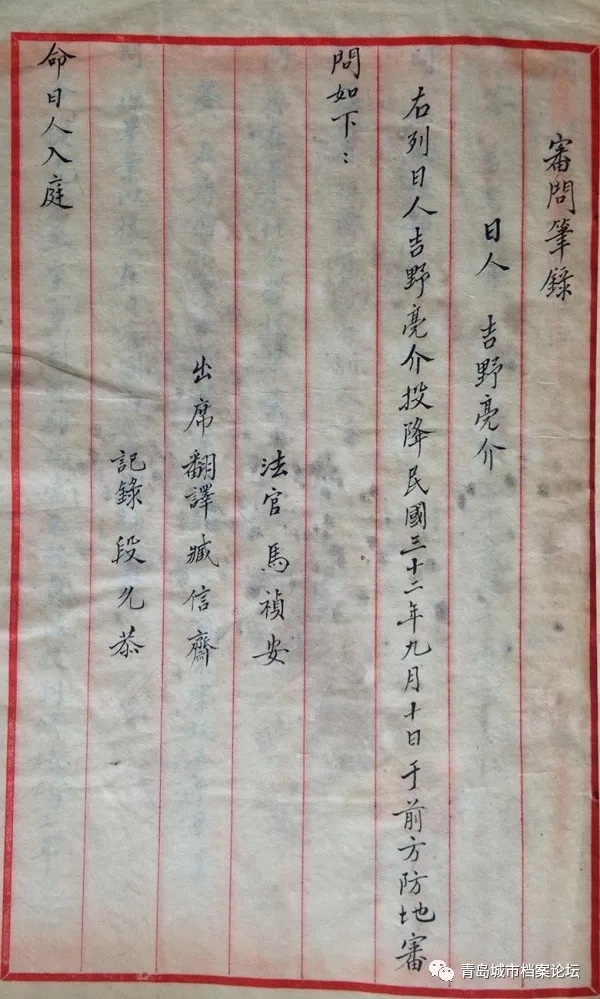 審問筆錄
日人 吉野亮介
右列日人吉野亮介投降民國三十二年九月十日于前方防地審
問如下：
法官馬禎安
出席翻譯臧信齋
記錄段允恭
命日人入庭
青岛城市档案论坛